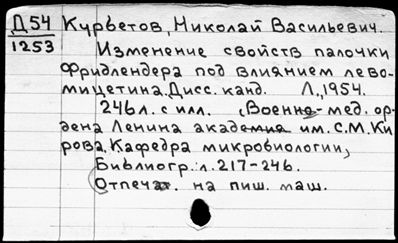 Д54 Курбетов, Николай Васильевич.
1253
Изменение свойств палочки
Фридлендера под влиянием лево-
мицетина. Дисс. канд. Л., 1954.
246 л. с илл. (Военно-мед. ор-
дена Ленина академия им. С.М. Ки
рова. Кафедра микробиологии,
Библиогр.: л. 217-246.
Отпечат. на пиш. маш.